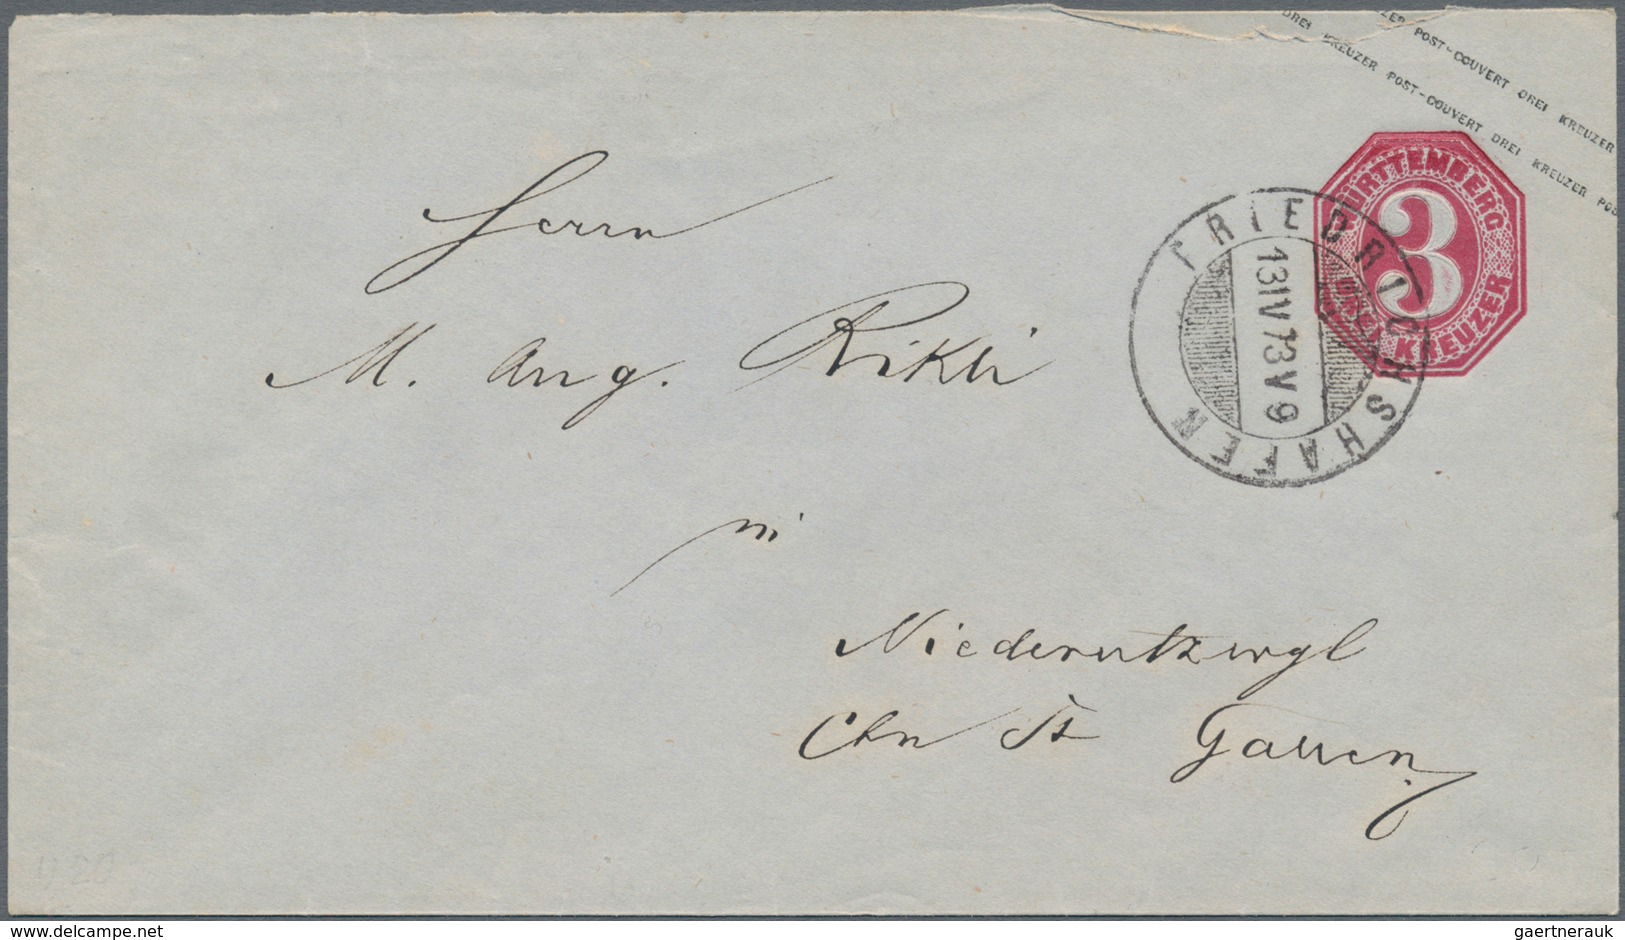 DREI KREUZER POST-COUVERT DREI KREUZER POS
ZER POST-COUVERT DREI KREUZER
WÜRTTEMBERG
3
DREI KREUZER
FRIEDRICHSHAFEN
13 IV 73 V 9
Herrn
M. Aug. Rikli
in
Niederutzwyl
Ctn St Gallen
delcampe.net
gaertnerauk